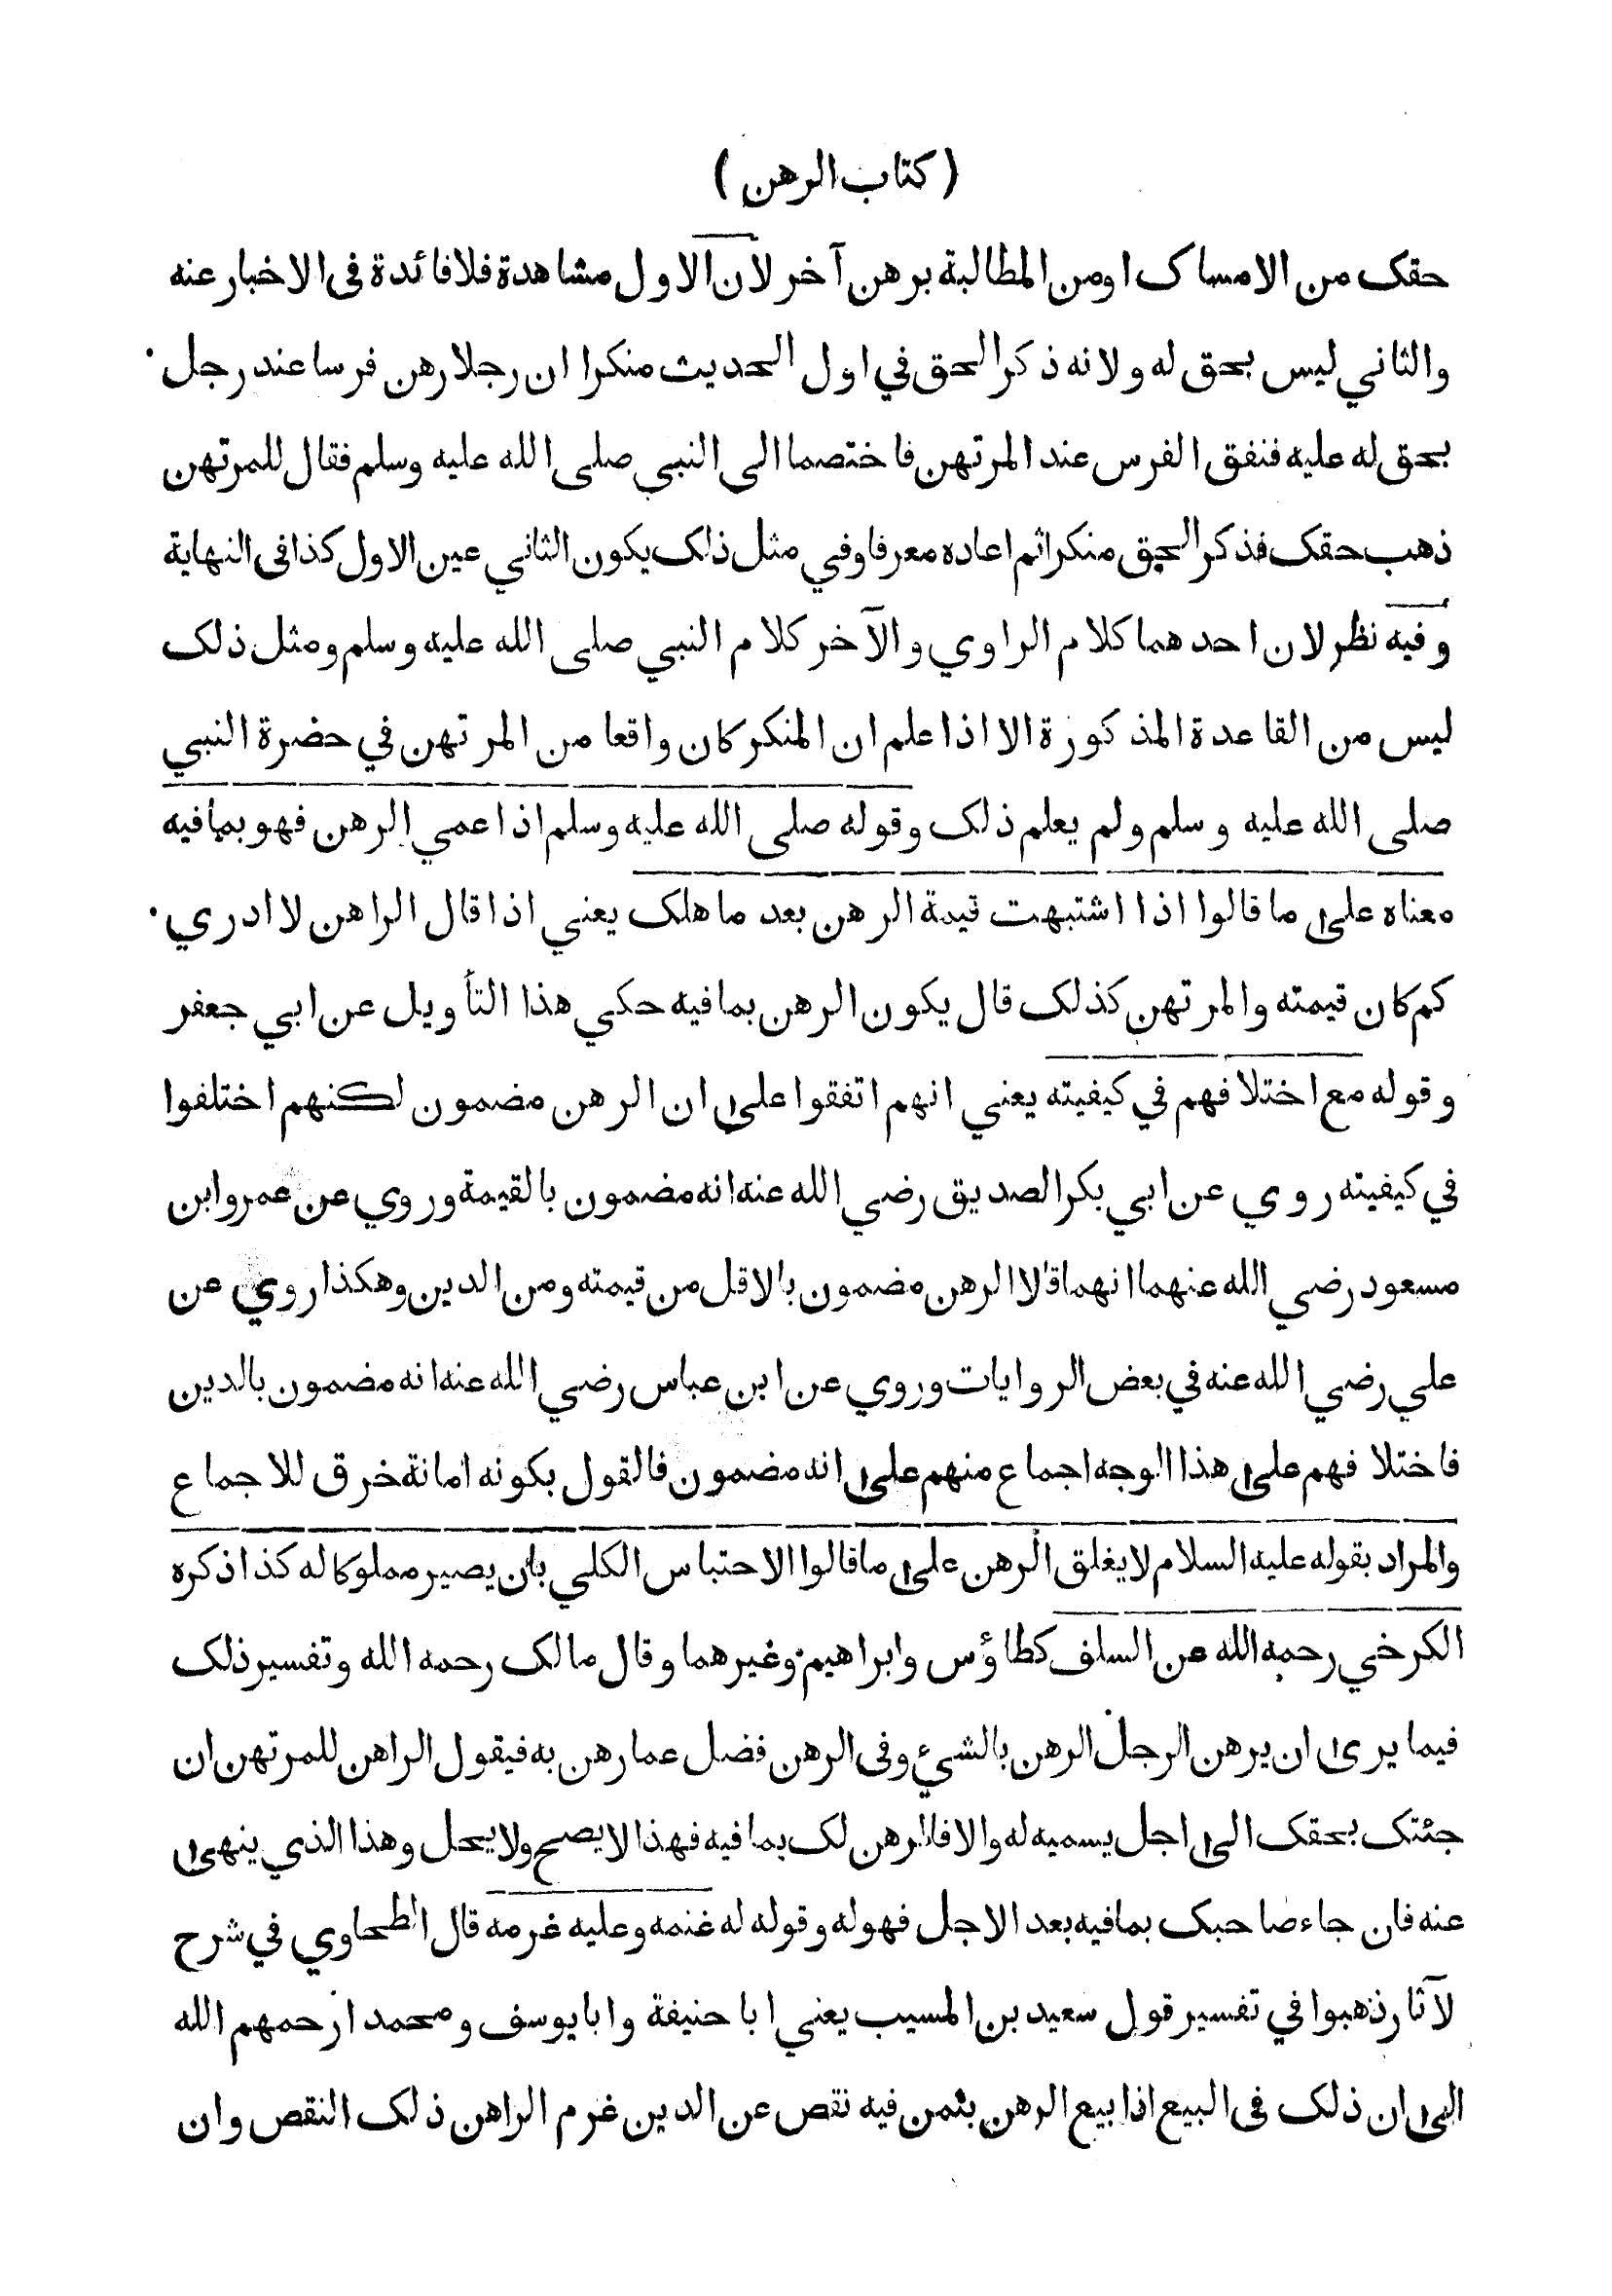 ( كتاب الرهن )
حقك من الامساك اومن المطالبة برهن آخر لان الاول مشاهدة فلا فائدة فى الاخبار عنه
والثاني ليس بحق له ولانه ذكر الحق في اول الحديث منكرا ان رجلا رهن فرسا عند رجل
بحق له عليه فنفق الفرس عند المرتهن فاختصما الى النبي صلى الله عليه وسلم فقال للمرتهن
ذهب حقك فذكر الحق منكرا ثم اعاده معرفا وفي مثل ذلك يكون الثاني عين الاول كذا فى النهاية
وفيه نظر لان احدهما كلام الراوي والآخر كلام النبي صلى الله عليه وسلم ومثل ذلك
ليس من القاعدة المذكورة الا اذا علم ان المنكر كان واقعا من المرتهن في حضرة النبي
صلى الله عليه وسلم ولم يعلم ذلك وقوله صلى الله عليه وسلم اذا عمي الرهن فهو بما فيه
معناه على ما قالوا اذا اشتبهت قيمة الرهن بعد ما هلك يعني اذا قال الراهن لا ادري
كم كان قيمته والمرتهن كذلك قال يكون الرهن بما فيه حكي هذا التأويل عن ابي جعفر
وقوله مع اختلافهم في كيفيته يعني انهم اتفقوا على ان الرهن مضمون لكنهم اختلفوا
في كيفيته روي عن ابي بكر الصديق رضي الله عنه انه مضمون بالقيمة وروي عن عمر وابن
مسعود رضي الله عنهما انهما قالا الرهن مضمون بالاقل من قيمته ومن الدين وهكذا روي عن
علي رضي الله عنه في بعض الروايات وروي عن ابن عباس رضي الله عنه انه مضمون بالدين
فاختلافهم على هذا الوجه اجماع منهم على انه مضمون فالقول بكونه امانة خرق للاجماع
والمراد بقوله عليه السلام لا يغلق الرهن على ما قالوا الاحتباس الكلي بان يصير مملوكا له كذا ذكره
الكرخي رحمه الله عن السلف كطاؤس وابراهيم وغيرهما وقال مالك رحمه الله وتفسير ذلك
فيما يرى ان يرهن الرجل الرهن بالشيئ وفى الرهن فضل عما رهن به فيقول الراهن للمرتهن ان
جئتك بحقك الى اجل يسميه له والا فالرهن لك بما فيه فهذا لا يصح ولا يحل وهذا الذي ينهى
عنه فان جاء صاحبك بما فيه بعد الاجل فهو له وقوله له غنمه وعليه غرمه قال الطحاوي في شرح
لآثار ذهبوا في تفسير قول سعيد بن المسيب يعني ابا حنيفة وابا يوسف ومحمدا رحمهم الله
الى ان ذلك فى البيع اذا بيع الرهن بثمن فيه نقص عن الدين غرم الراهن ذلك النقص وان